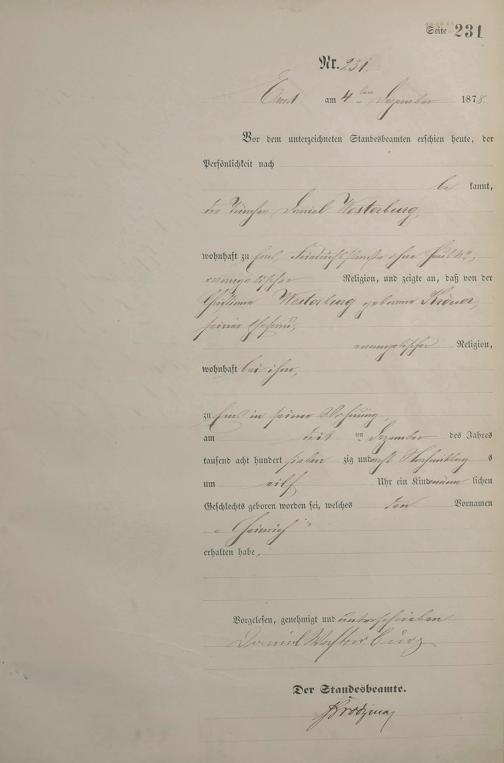 Seite 231
Nr. 231.
Ems am 4ten Dezember 1878.
Vor dem unterzeichneten Standesbeamten erschien heute, der
Persönlichkeit nach
be kannt,
der Daniel Westerburg,
wohnhaft zu Ems,
evangelischer Religion, und zeigte an, daß von der
Westerburg geborene
seiner Ehefrau,
evangelischer Religion,
wohnhaft bei ihm,
zu Ems in seiner Wohnung,
am ten Dezember des Jahres
tausend acht hundert sieben zig und acht Vormittag s
um elf Uhr ein Kind männ lichen
Geschlechts geboren worden sei, welches den Vornamen
„Heinrich“
erhalten habe,
Vorgelesen, genehmigt und unterschrieben
Daniel Westerburg
Der Standesbeamte.